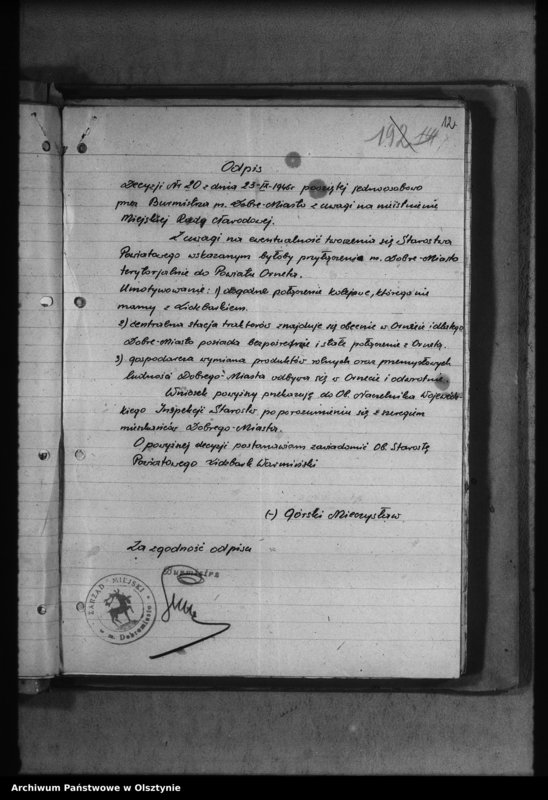 12.
192
Odpis
Decyzji Nr 20 z dnia 23-IX-1946r powziętej jednoosobowo
przez Burmistrza m. Dobre-Miasto z uwagi na nieistnienie
Miejskiej Rady Narodowej.
Z uwagi na ewentualność tworzenia się Starostwa
Powiatowego wskazanym byłoby przyłączenie m. Dobre-Miasto
terytorjalnie do Powiatu Orneta.
Umotywowanie: 1) dogodne połączenie kolejowe, którego nie
mamy z Lidzbarkiem.
2) centralna stacja traktorów znajduje się obecnie w Ornecie i dlatego
Dobre-Miasto posiada bezpośrednie i stałe połączenie z Ornetą.
3) gospodarcza wymiana produktów rolnych oraz przemysłowych
ludności Dobrego-Miasta odbywa się w Ornecie i odwrotnie.
Wniosek powyższy przekazuję do Ob. Naczelnika Wojewódz-
kiego Inspekcji Starostw po porozumieniu się z szeregiem
mieszkańców Dobrego-Miasta.
O powyższej decyzji postanawiam zawiadomić Ob. Starostę
Powiatowego Lidzbark Warmiński
(-) Górski Mieczysław
Za zgodność odpisu
Burmistrz
ZARZĄD MIEJSKI
w m. Dobremieście
Archiwum Państwowe w Olsztynie